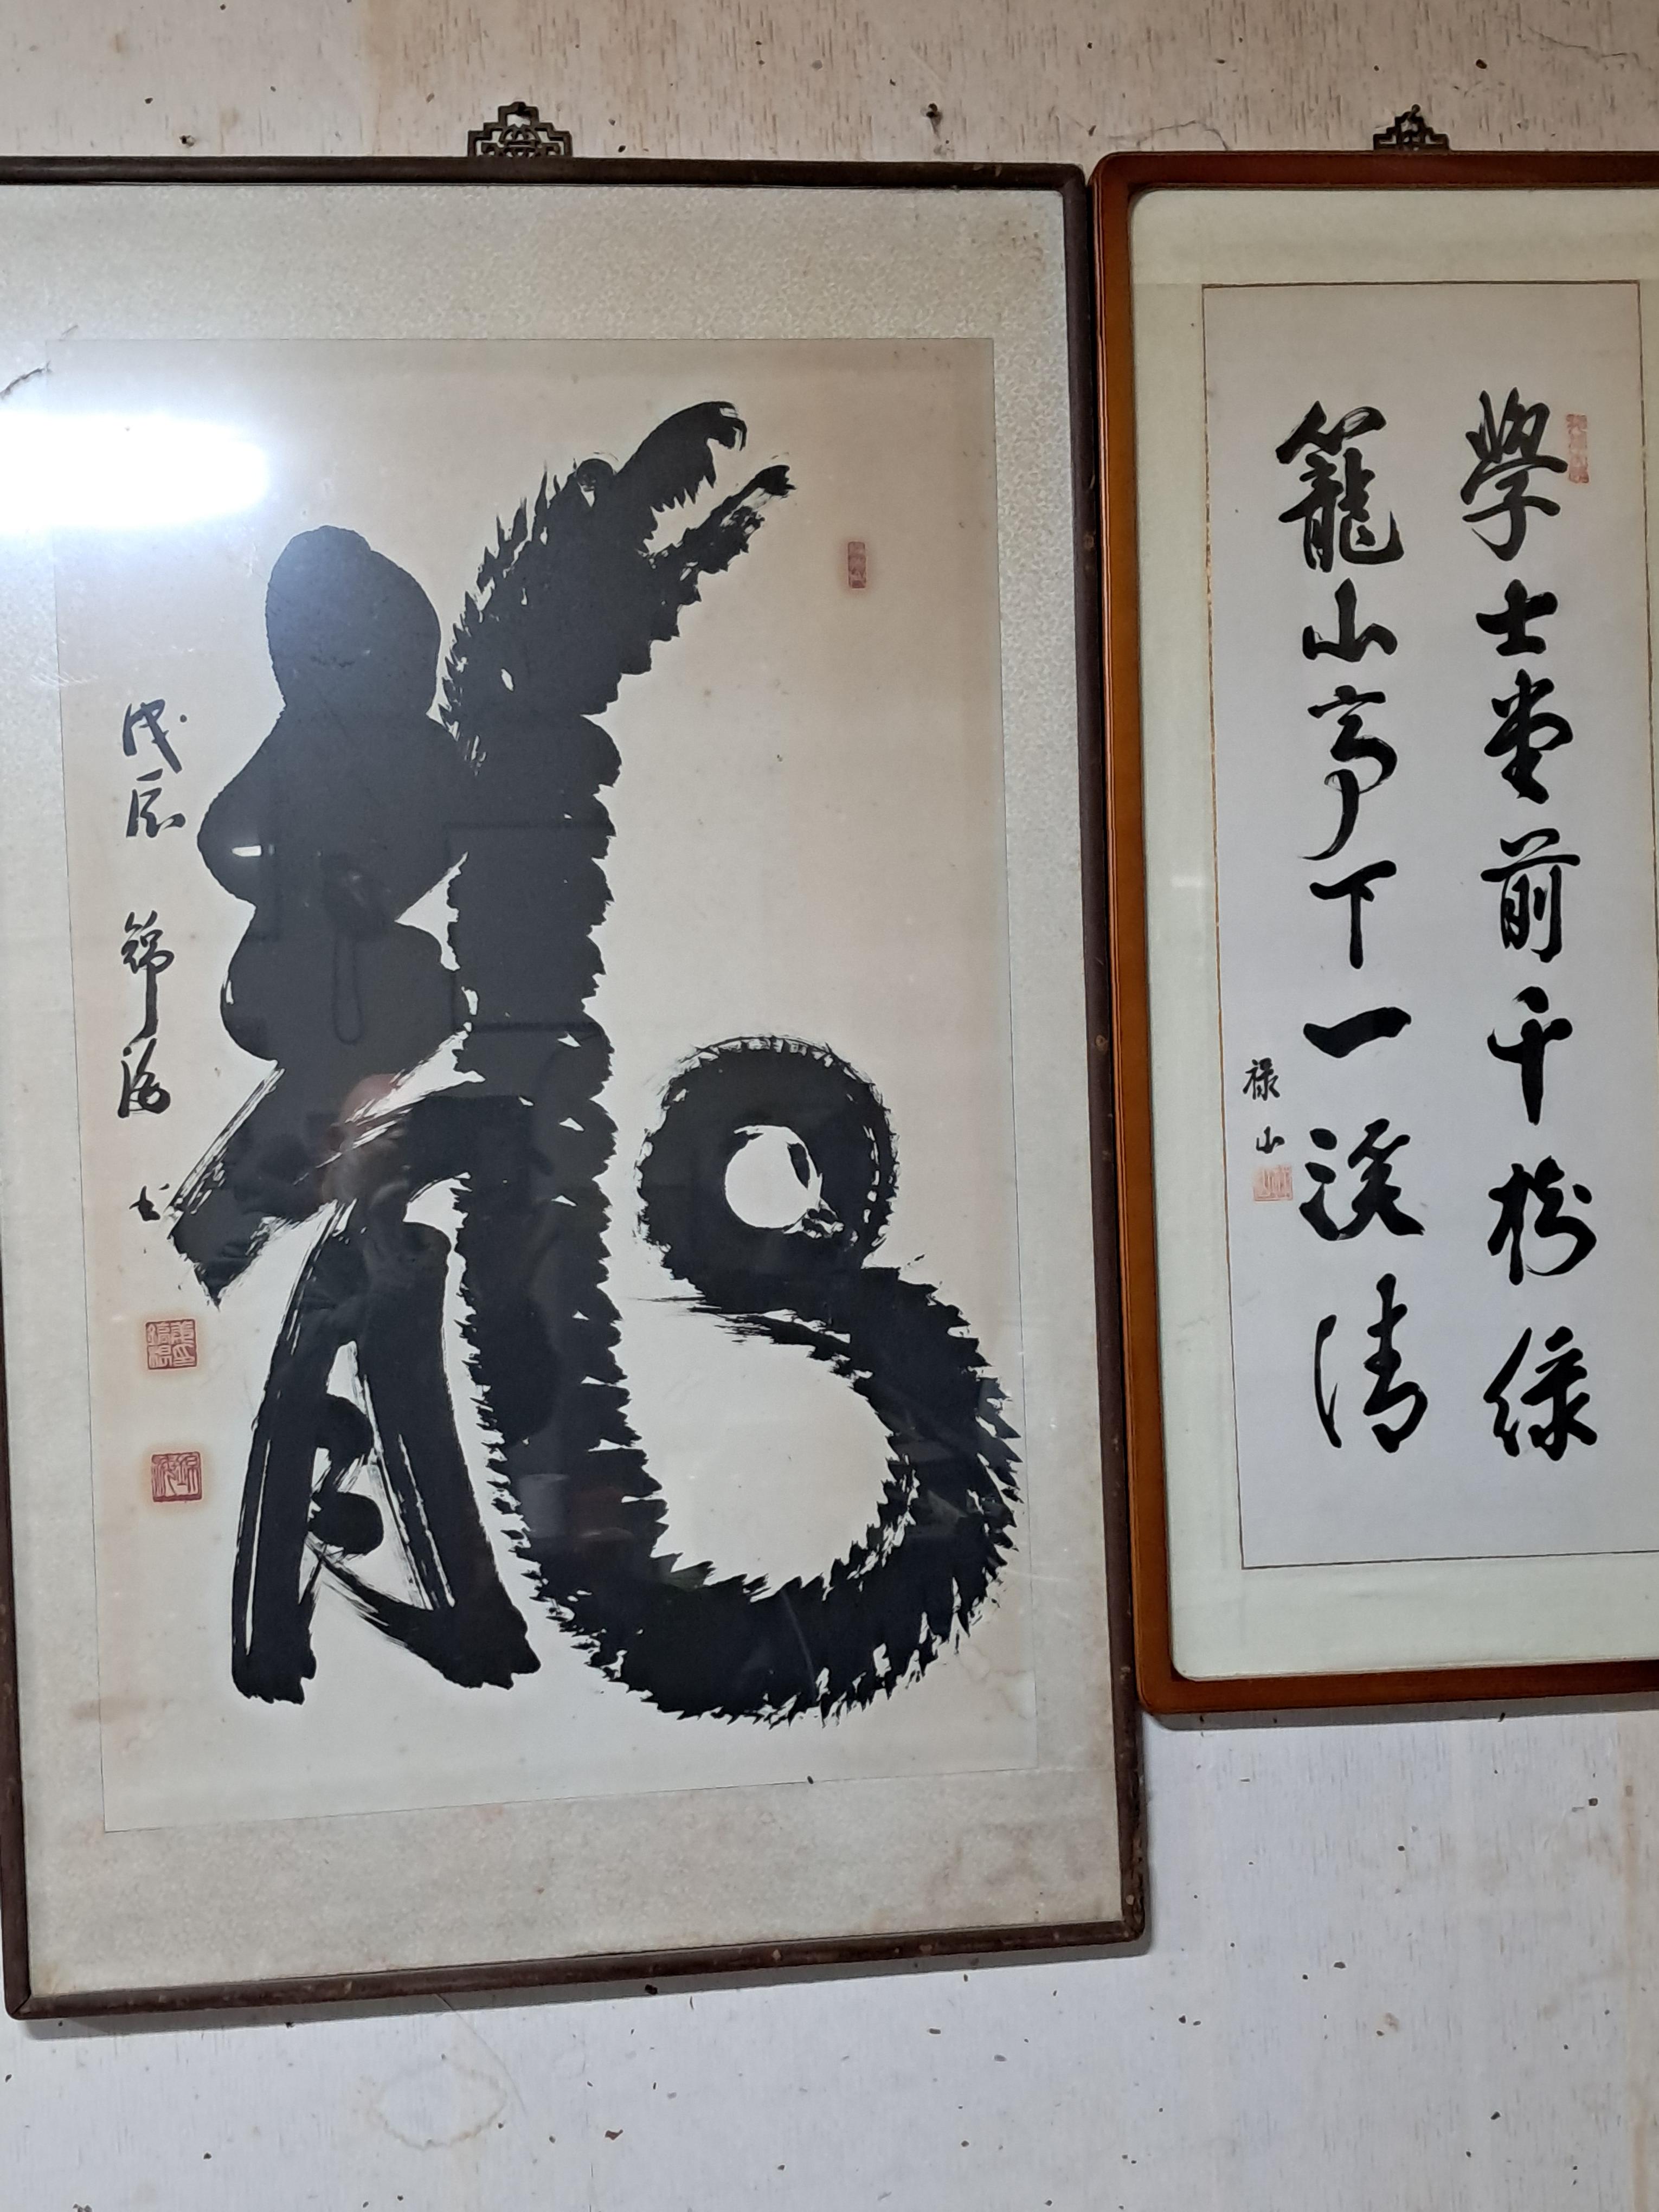 龍
戊辰 錦海 書
學士堂前千樹綠
籠山亭下一溪清
禄山